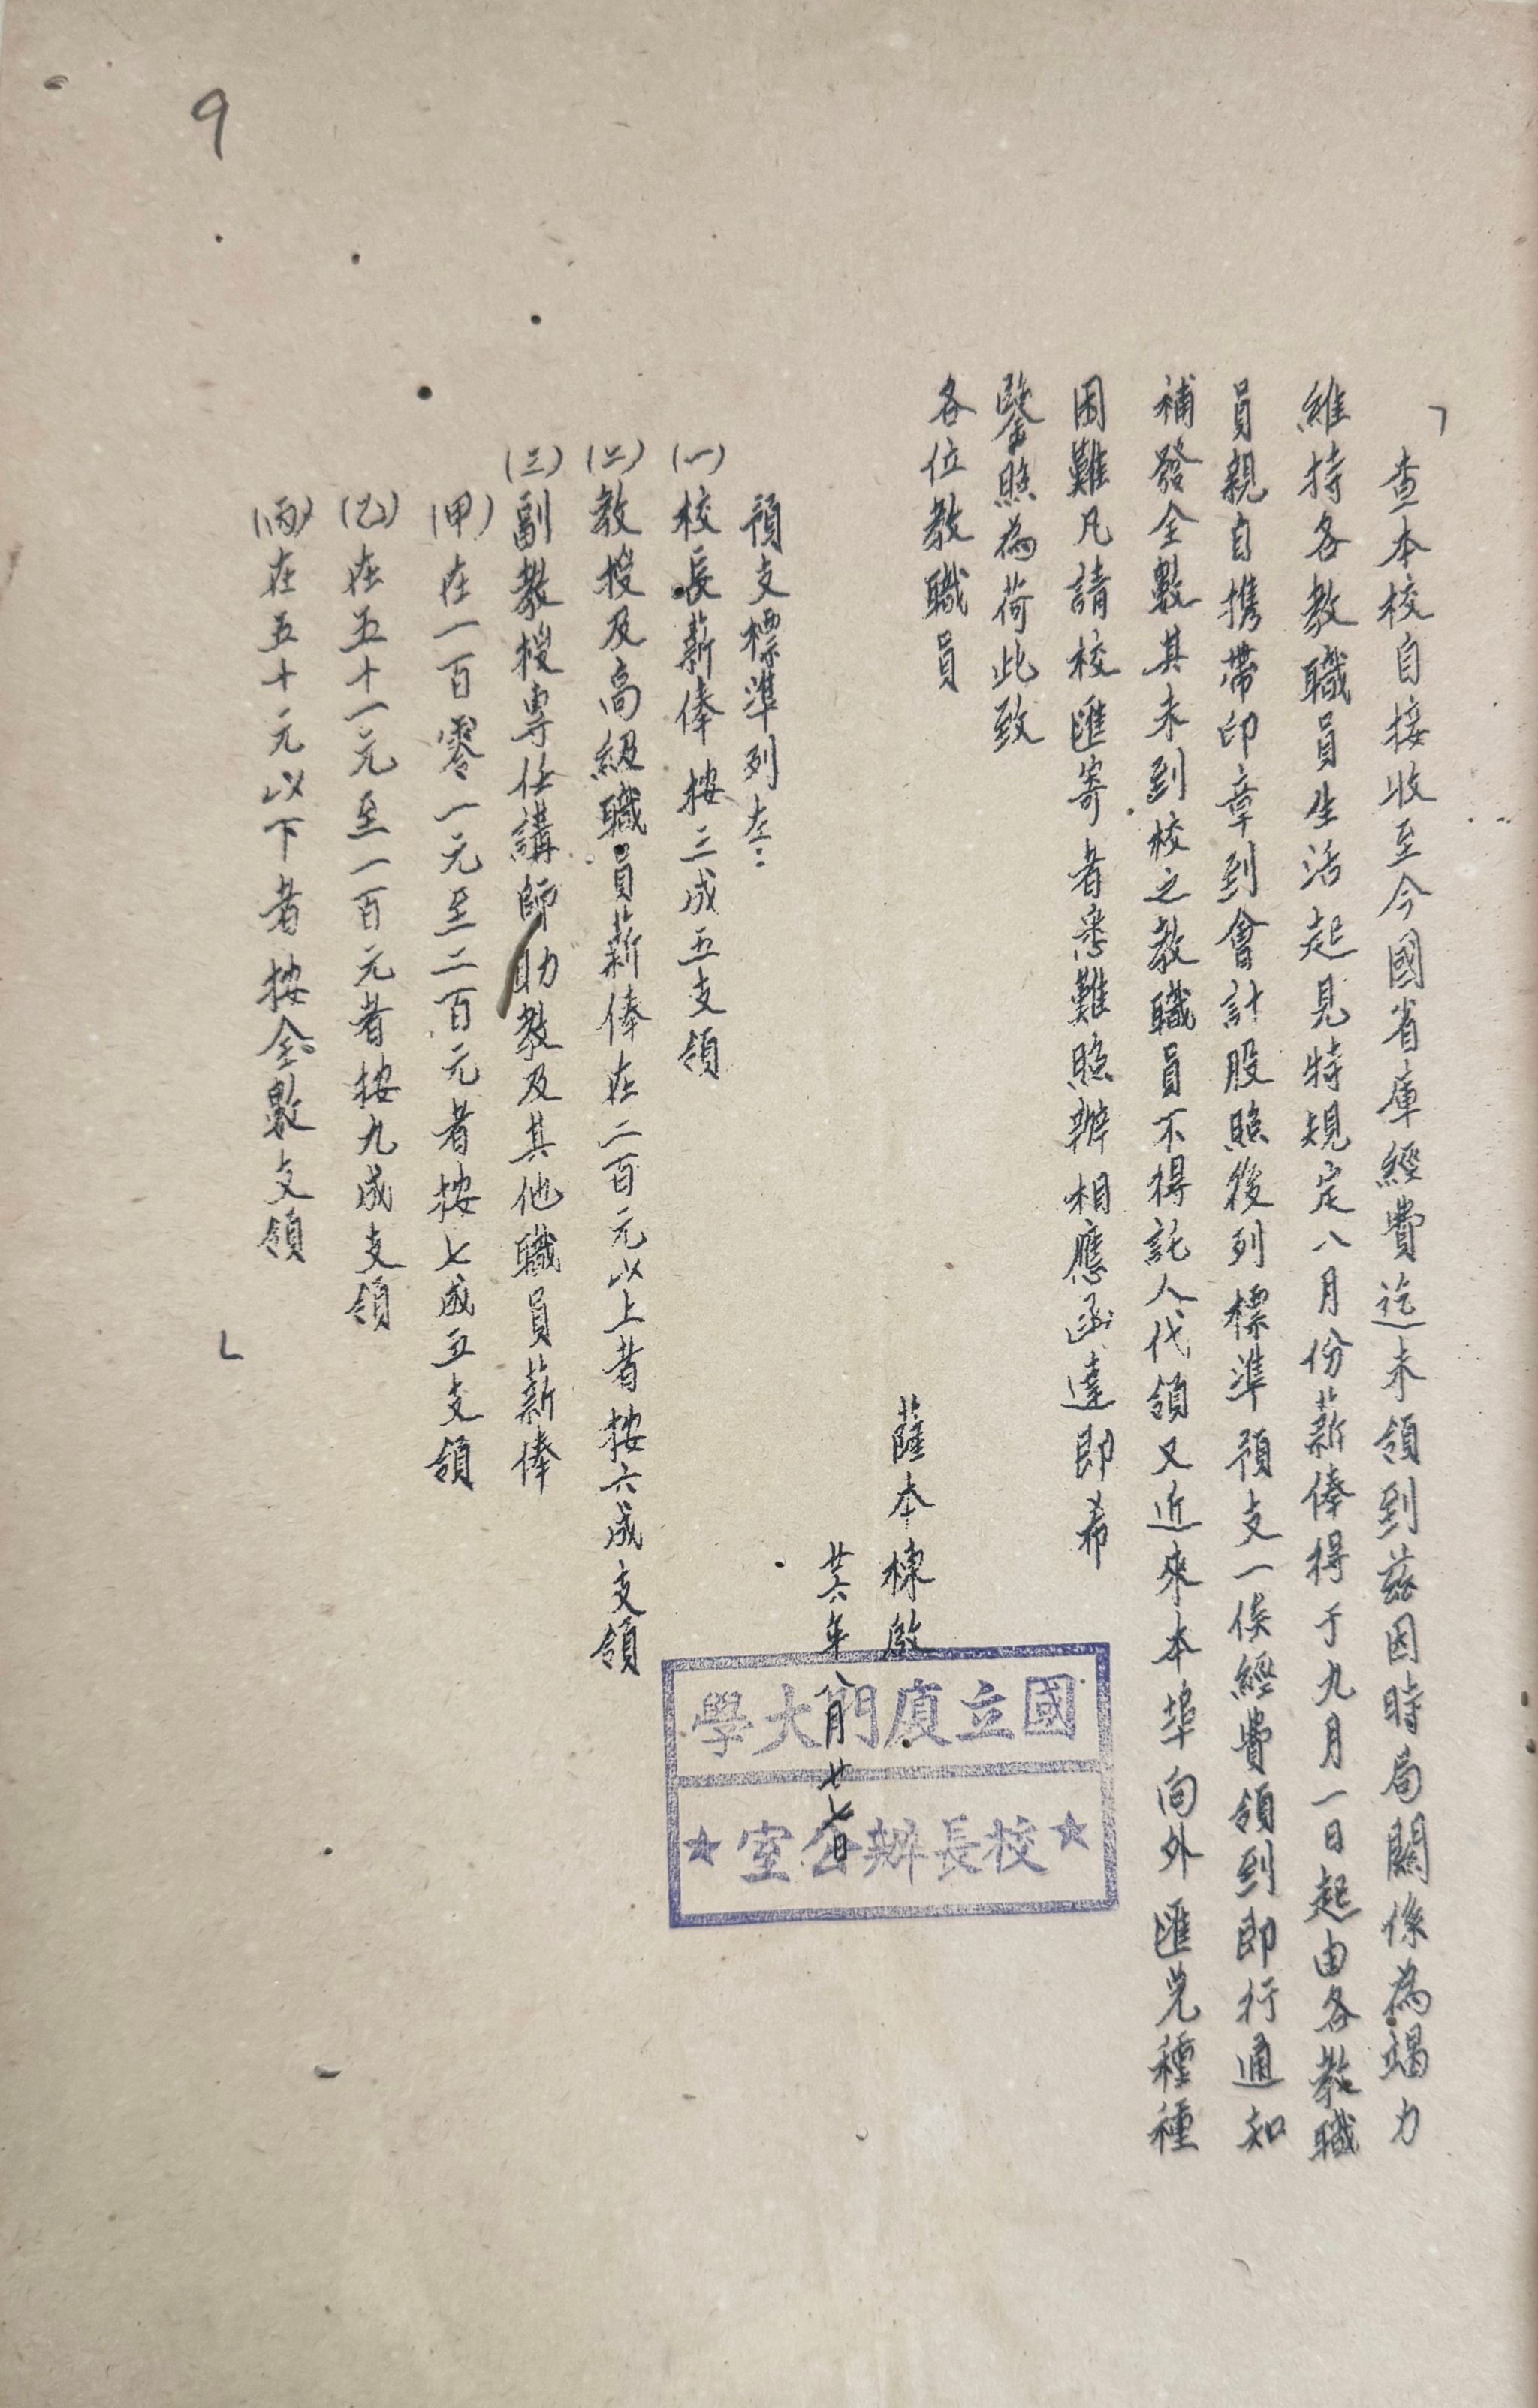 「查本校自接收至今國省庫經費迄未領到茲因時局關係為竭力
維持各教職員生活起見特規定八月份薪俸得于九月一日起由各教職
員親自携帶印章到會計股照後列標準預支一俟經費領到即行通知
補發全數其未到校之教職員不得託人代領又近來本埠向外匯兌種種
困難凡請校匯寄者悉難照辦相應函達即希
鑒照為荷此致
各位教職員
薩本棟啟
廿六年八月廿七日
國立廈門大學
★校長辦公室★
預支標準列左：
(一)校長薪俸按三成五支領
(二)教授及高級職員薪俸在二百元以上者按六成支領
(三)副教授專任講師助教及其他職員薪俸
(甲)在一百零一元至二百元者按七成五支領
(乙)在五十一元至一百元者按九成支領
(丙)在五十元以下者按全數支領」
9